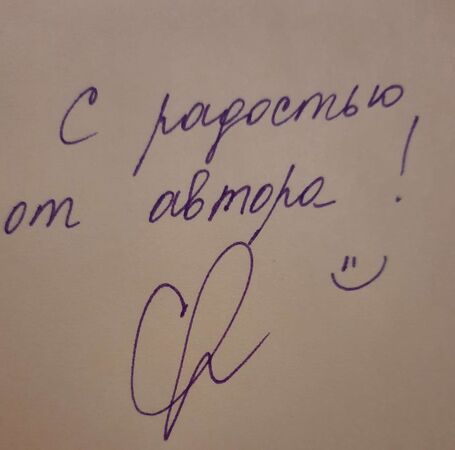 С радостью
от автора!